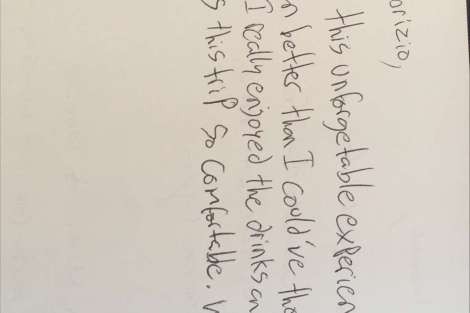 orizio,
this unforgetable experien
n better than I could've tho
I really enjoyed the drinks an
s this trip so comfortable. W